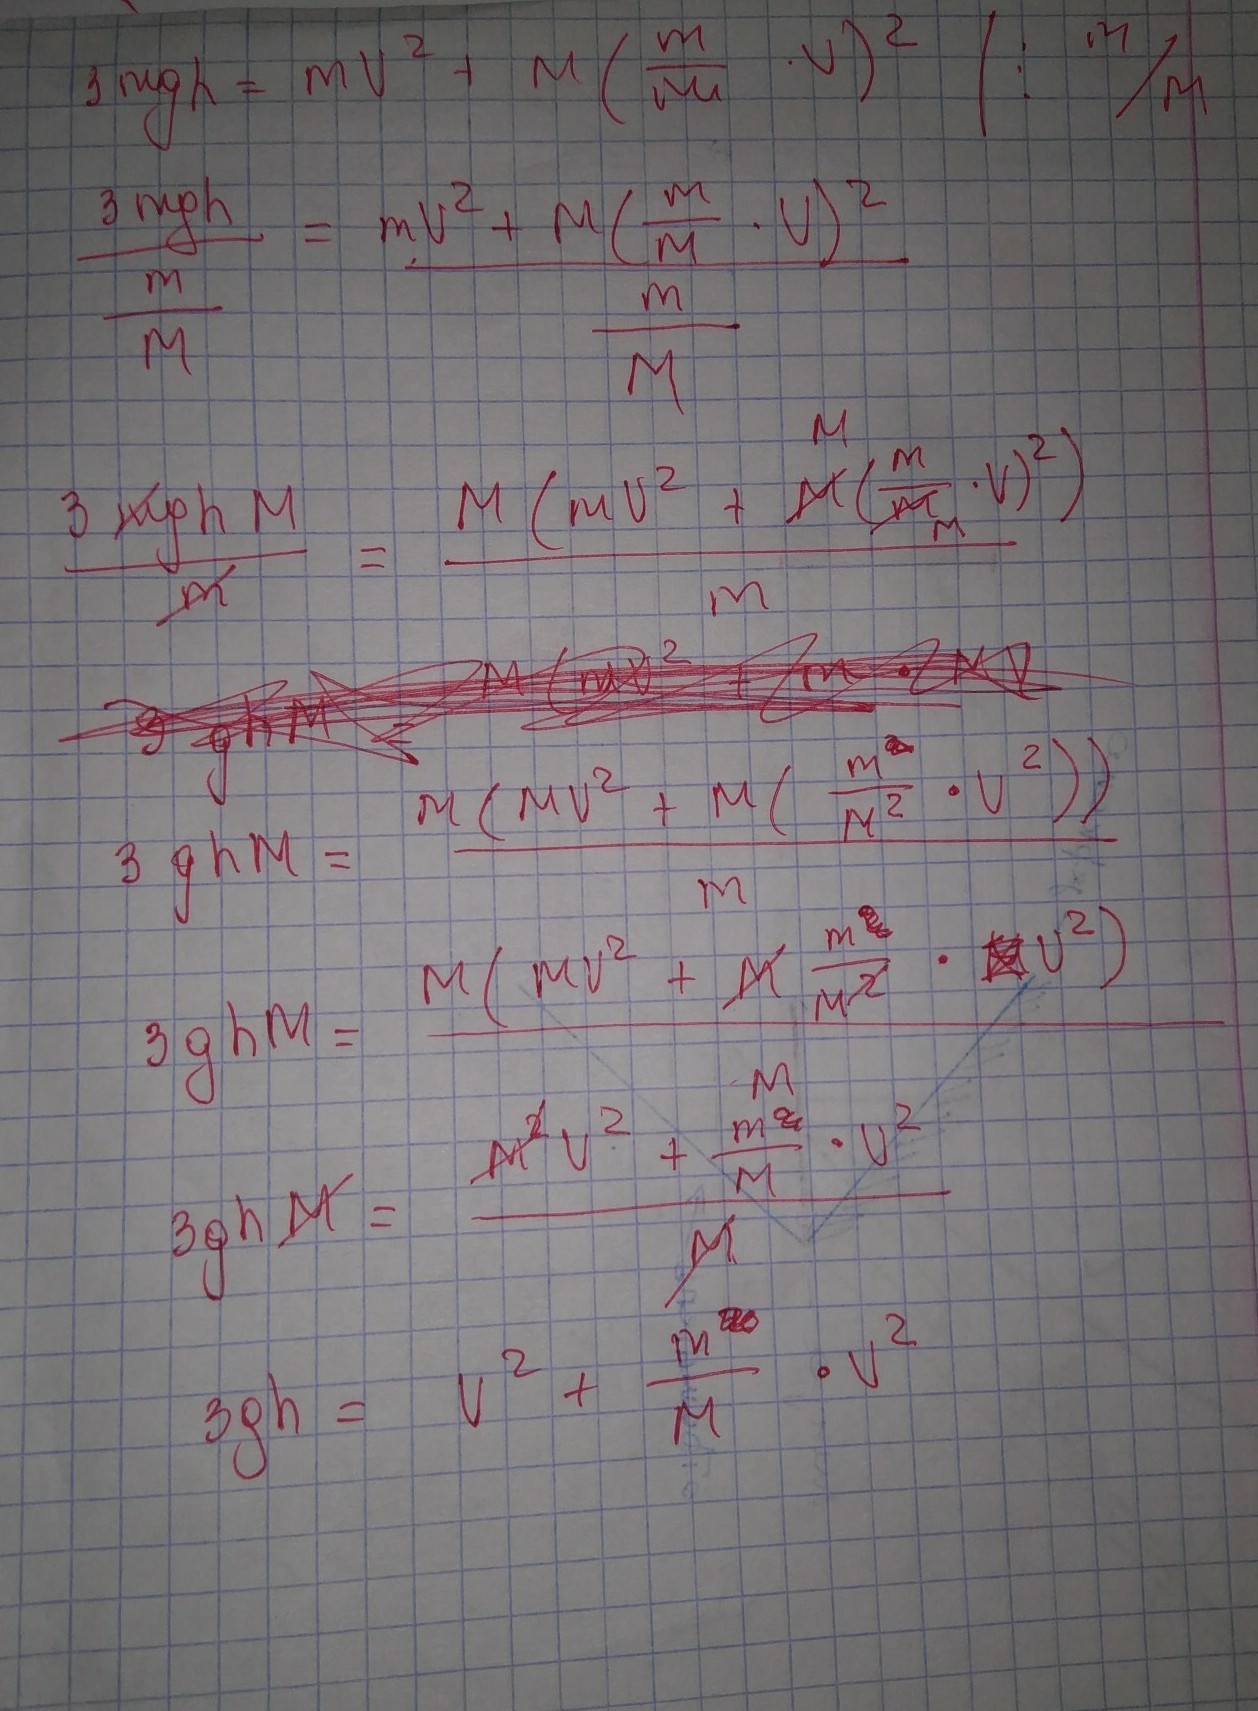 3mgh = mV² + M(m/M · V)² | : m/M
3mgh/(m/M) = (mV² + M(m/M · V)²)/(m/M)
3mghM/m = M(mV² + M(m/M · V)²)/m
3ghM = M(MV² + M(m²/M² · V²))/m
3ghM = M(MV² + M m²/M² · V²)
3ghM = (M²V² + m²/M · V²)/M
3gh = V² + m/M · V²